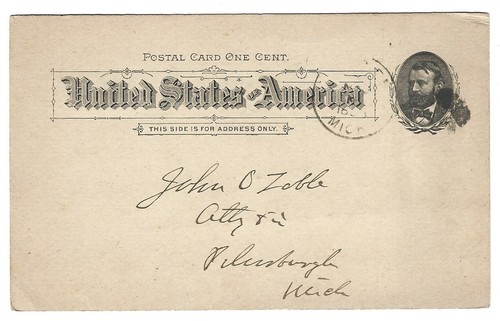 POSTAL CARD ONE CENT.
United States of America
THIS SIDE IS FOR ADDRESS ONLY.
MICH
John O Zable
Atty &c
Petersburgh
Mich